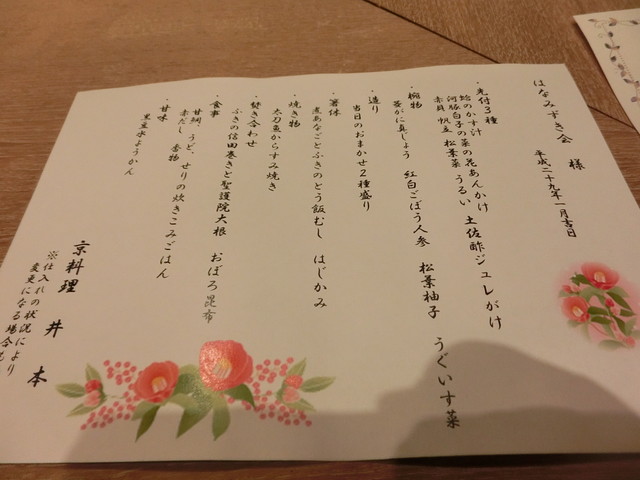 はなみずき会 様
平成二十九年一月吉日
・先付3種
蛤のかす汁
河豚白子の菜の花あんかけ
赤貝 帆立 松葉菜 うるい 土佐酢ジュレがけ
・椀物
ずがに真しょう 紅白ごぼう人参 松葉柚子 うぐいす菜
・造り
当日のおまかせ2種盛り
・箸休
煮あなごとふきのとう飯むし はじかみ
・焼き物
太刀魚からすみ焼き
・焚き合わせ
ふきの信田巻きと聖護院大根 おぼろ昆布
・食事
甘鯛、うど、せりの炊きこみごはん
赤だし 香物
・甘味
黒豆水ようかん
京料理 井本
※仕入れの状況により
変更になる場合も